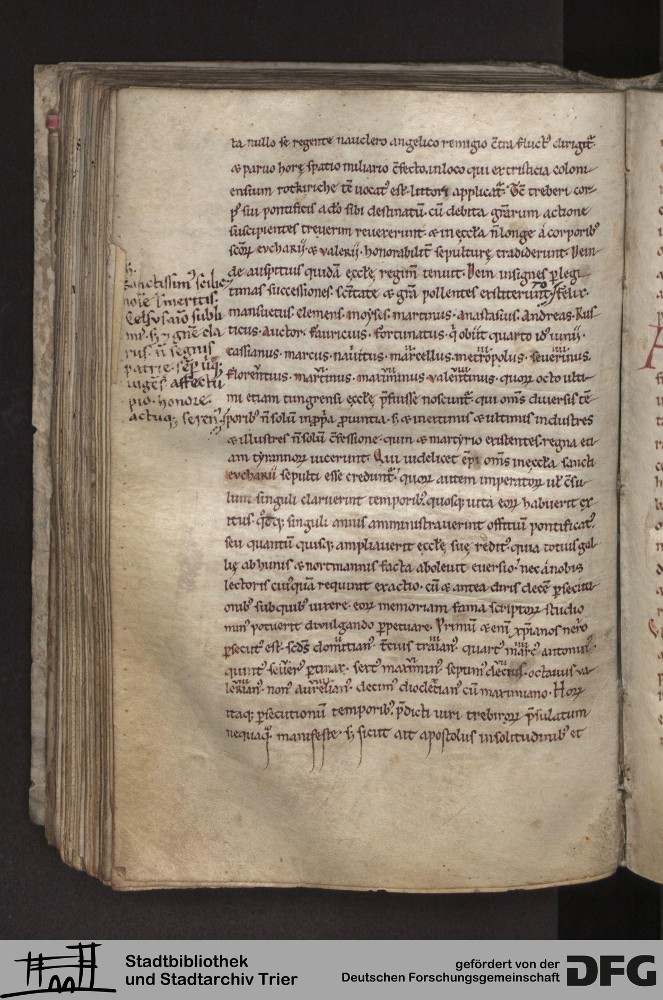 ta nullo se regente nauclero angelico remigio c̄tra fluctꝰ dirigit᷑.
& paruo horę spatio miliario c̄fecto. in loco qui ex tristicia coloni
ensium rotkiriche t̄e uocatꝰ est. littori applicat᷑. Tc̄ treberi cor
pꝰ sui pontificis a dō sibi destinatū. cū debita gr̄arum actione
suscipientes treuerim reuexerunt. & in ęccła ñ longe á corporibꝰ
scōꝝ eucharij. & valerij. honorabilit̄ sepulturę tradiderunt. Dein
de auspitius quidā ęccłę regim̄ tenuit. Dein insignes ꝑ legi
timas successiones. sc̄itate & gr̄a pollentes extiterunt. felix.
mansuetus. clemens. moyses. martinus. anastasius. Andreas. Rus
ticus. Auctor. fauricius. fortunatus. q̇ obiit quarto idꝰ iunij.
cassianus. marcus. nauitus. marcellus. metropolus. seuerinus.
florentius. martinus. maximinus. valentinus. quoꝝ octo ulti
mi etiam tungrensi ęccłę p̄fuisse noscunt᷑. qui om̄s diuersis tē
poribꝰ ñ solū in ꝓp̄a ꝓuintia. sꝫ & in extimis & ultimis industres
& illustres ñ solū c̄fessione. quin & martyrio existentes. regna eti
am tyrannoꝝ uicerunt. Qui uidelicet ep̄i om̄s in ęccła sancti
eucharii sepulti esse credunt᷑. quoꝝ autem imperatoꝝ uł c̄su
lum singuli claruerint temporibꝰ. quosqꝫ uita eoꝝ habuerit ex
itus. q̇dqꝫ singuli annis amministrauerint offitiū pontificatꝰ.
seu quantū quisqꝫ ampliauerit ęccłę suę redditꝰ. quia totius gal
lię ab hunis & nortmannis facta aboleuit euersio. nec á nobis
lectoris cuiꝰquā requirat exactio. cū & antea diris decē ꝑsecuti
onibꝰ sub quibꝰ uixere. eoꝝ memoriam fama scriptoꝝ studio
minꝰ potuerit diuulgando ꝑpetuare. Primū & eni̅ xp̄ianos nero
ꝑsecutꝰ est. sc̄ds domitianꝰ. tertius traianꝰ. quartꝰ marcꝰ antoninꝰ.
quintꝰ seuerꝰ pertinax. sextꝰ maximinꝰ. septimꝰ decius. octauus va
lerianꝰ. nonꝰ aurelianꝰ. decimꝰ dioclecianꝰ cū maximiano. Hoꝝ
itaqꝫ ꝑsecutionū temporibꝰ. p̄dicti uiri trebiroꝝ p̄sulatum
nequaq̄ manifeste. sꝫ sicut ait apostolus in solitudinibꝰ et
Sanctissimꝰ
Celsos
patrie
affectu
pio. honore
actuqꝫ serenꝰ
Stadtbibliothek
und Stadtarchiv Trier
gefördert von der
Deutschen Forschungsgemeinschaft
DFG